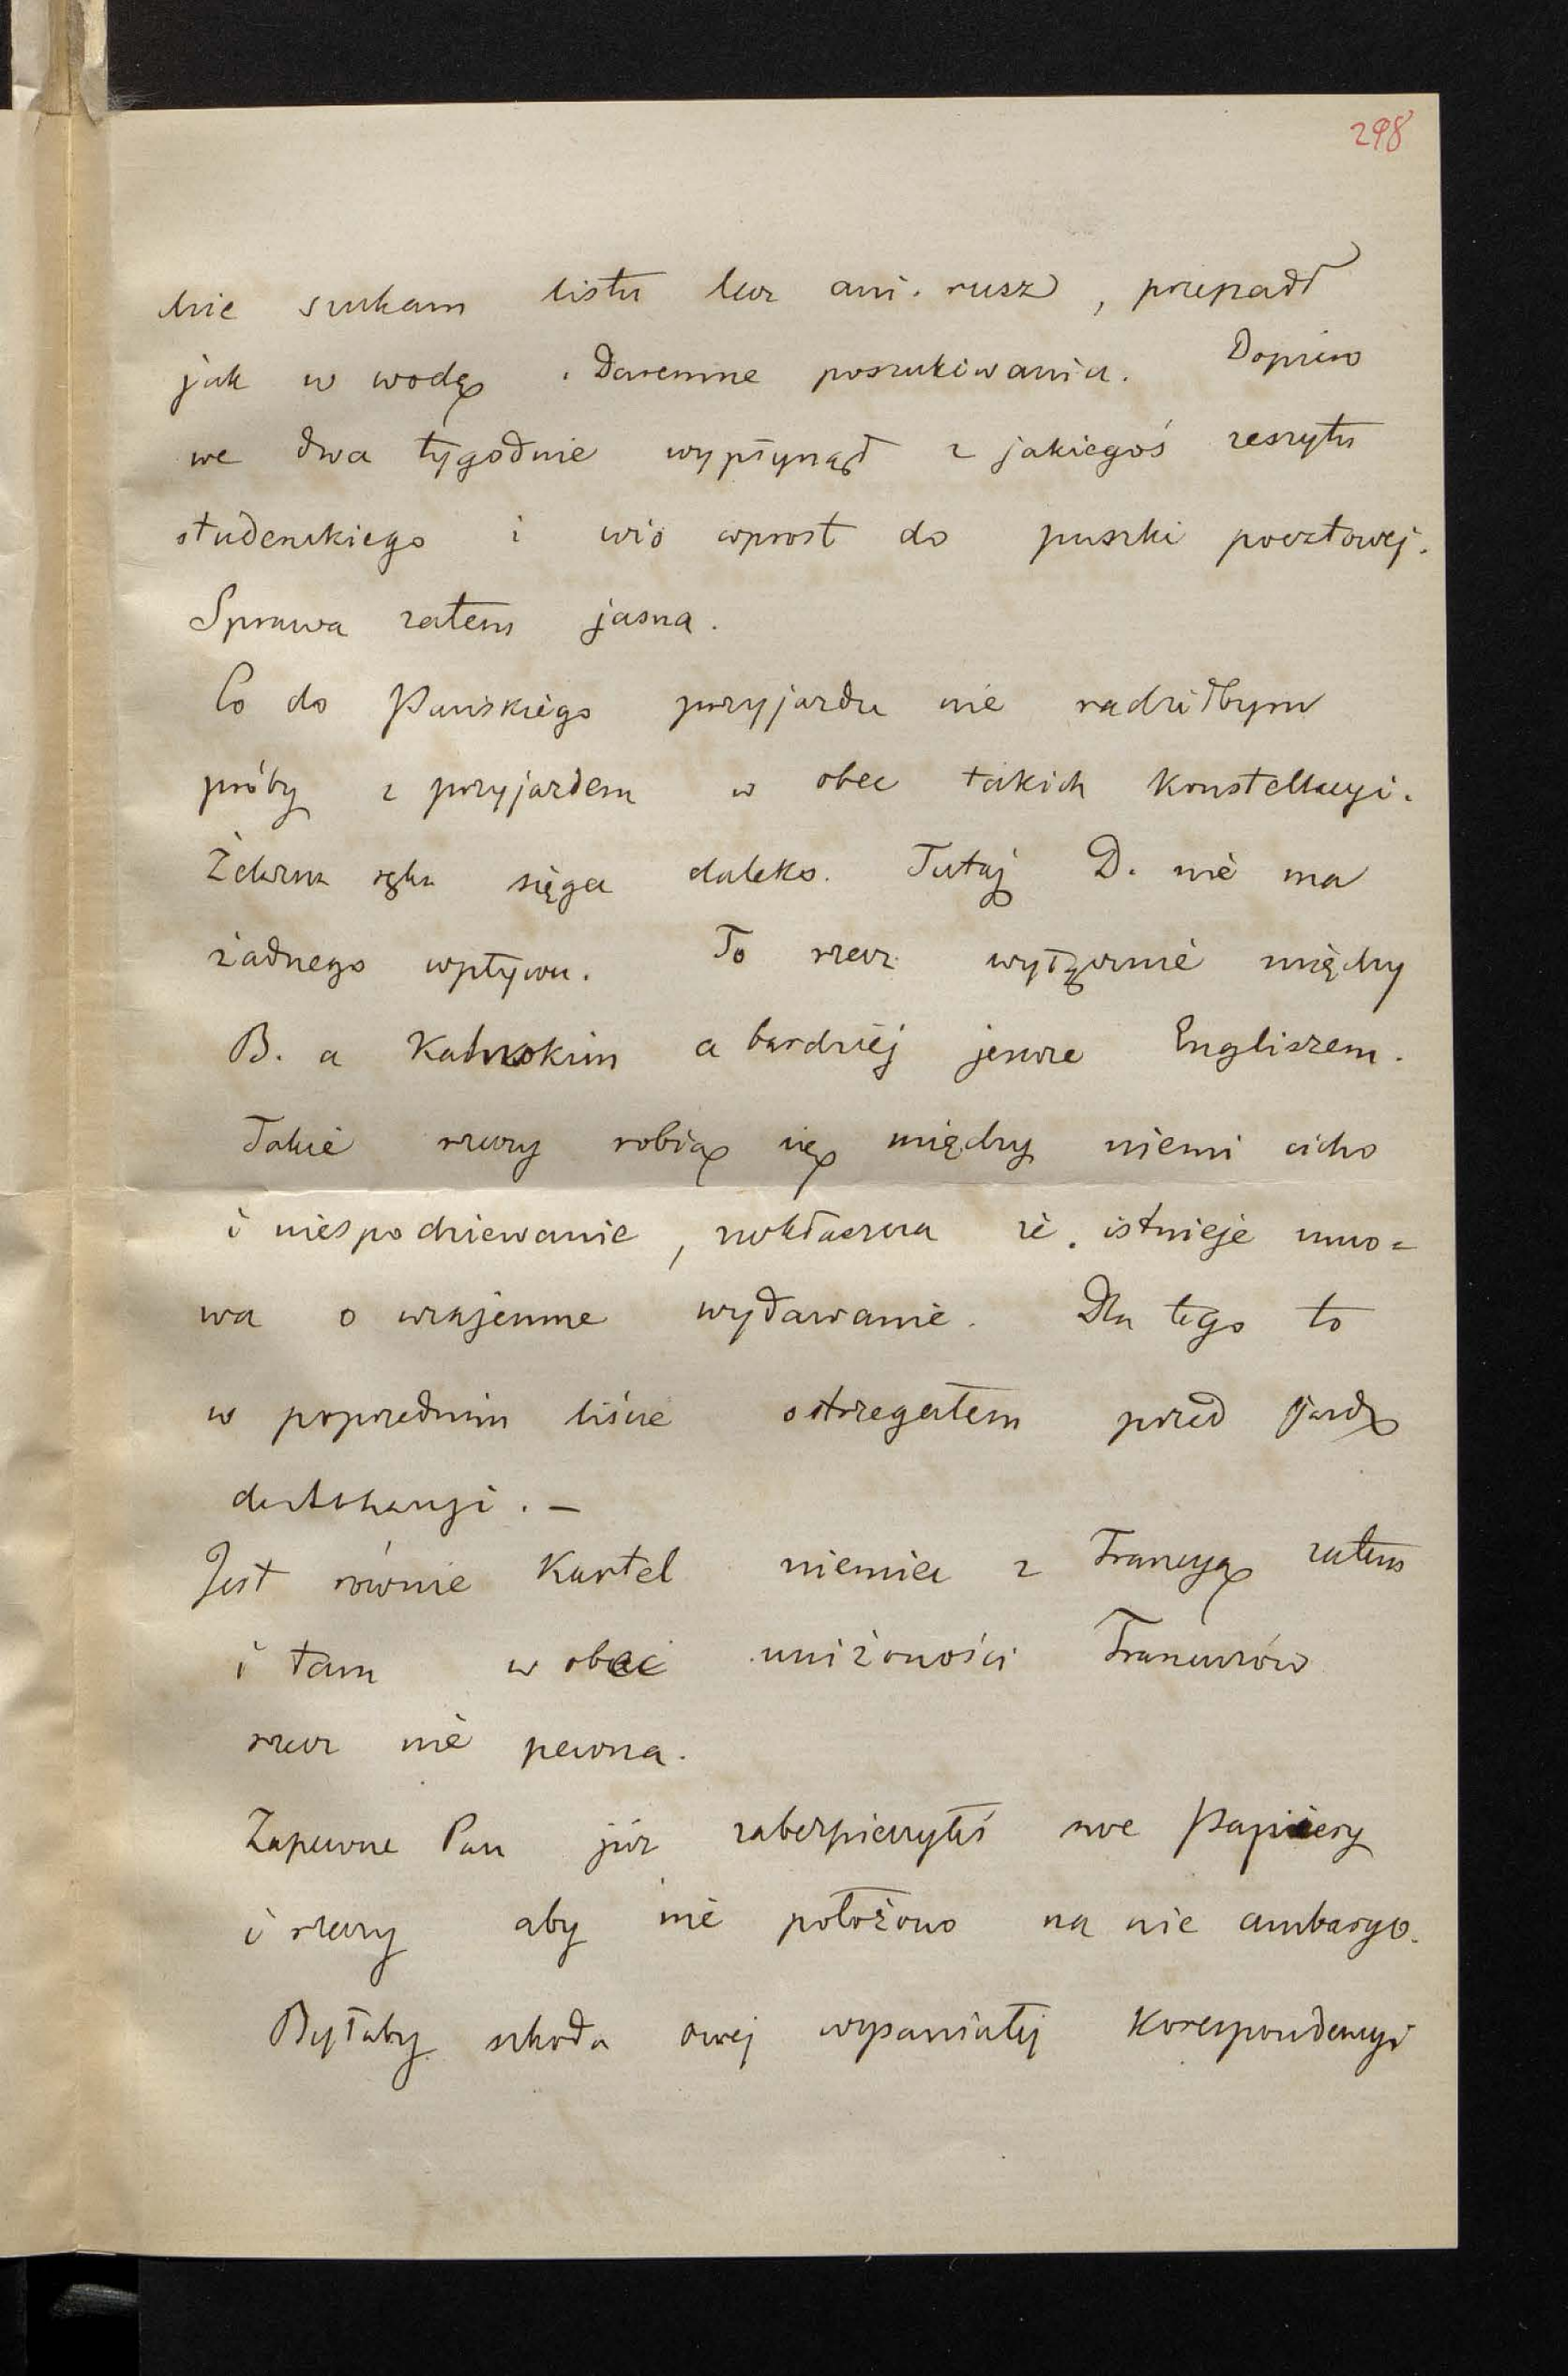 298
dnie szukam listu lecz ani rusz, przepadł
jak w wodę. Daremne poszukiwania. Dopiero
we dwa tygodnie wypłynął z jakiegoś zeszytu
studenckiego i wio wprost do puszki pocztowej.
Sprawa zatem jasna.
Co do Pańskiego przyjazdu nie radziłbym
próby z przyjazdem w obec takich konstellacyi.
Żelazna ręka sięga daleko. Tutaj D. nie ma
żadnego wpływu. To rzecz wyłącznie między
B. a Kalnokim a bardziej jeszcze Engliszem.
Takie rzeczy robią się między niemi cicho
i niespodziewanie, zwłaszcza że istnieje umo=
wa o wzajemne wydawanie. Dla tego to
w poprzednim liście ostrzegałem przed jazdą
Jest równie kartel niemiec z Francyą zatem
i tam w obec uniżoności Francuzów
rzecz nie pewna.
Zapewne Pan już zabezpieczyłeś swe papiery
i rzeczy aby nie położono na nie ambargo.
Byłaby szkoda owej wspaniałej korespondencyi